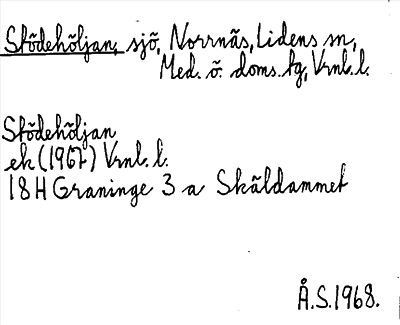 Stödehöljan, sjö, Norrnäs, Lidens sn,
Med. ö. doms. tg, Vrnl. l.
Stödehöljan
ek (1967) Vrnl. l.
18H Graninge 3 a Skäldammet
Å.S.1968.